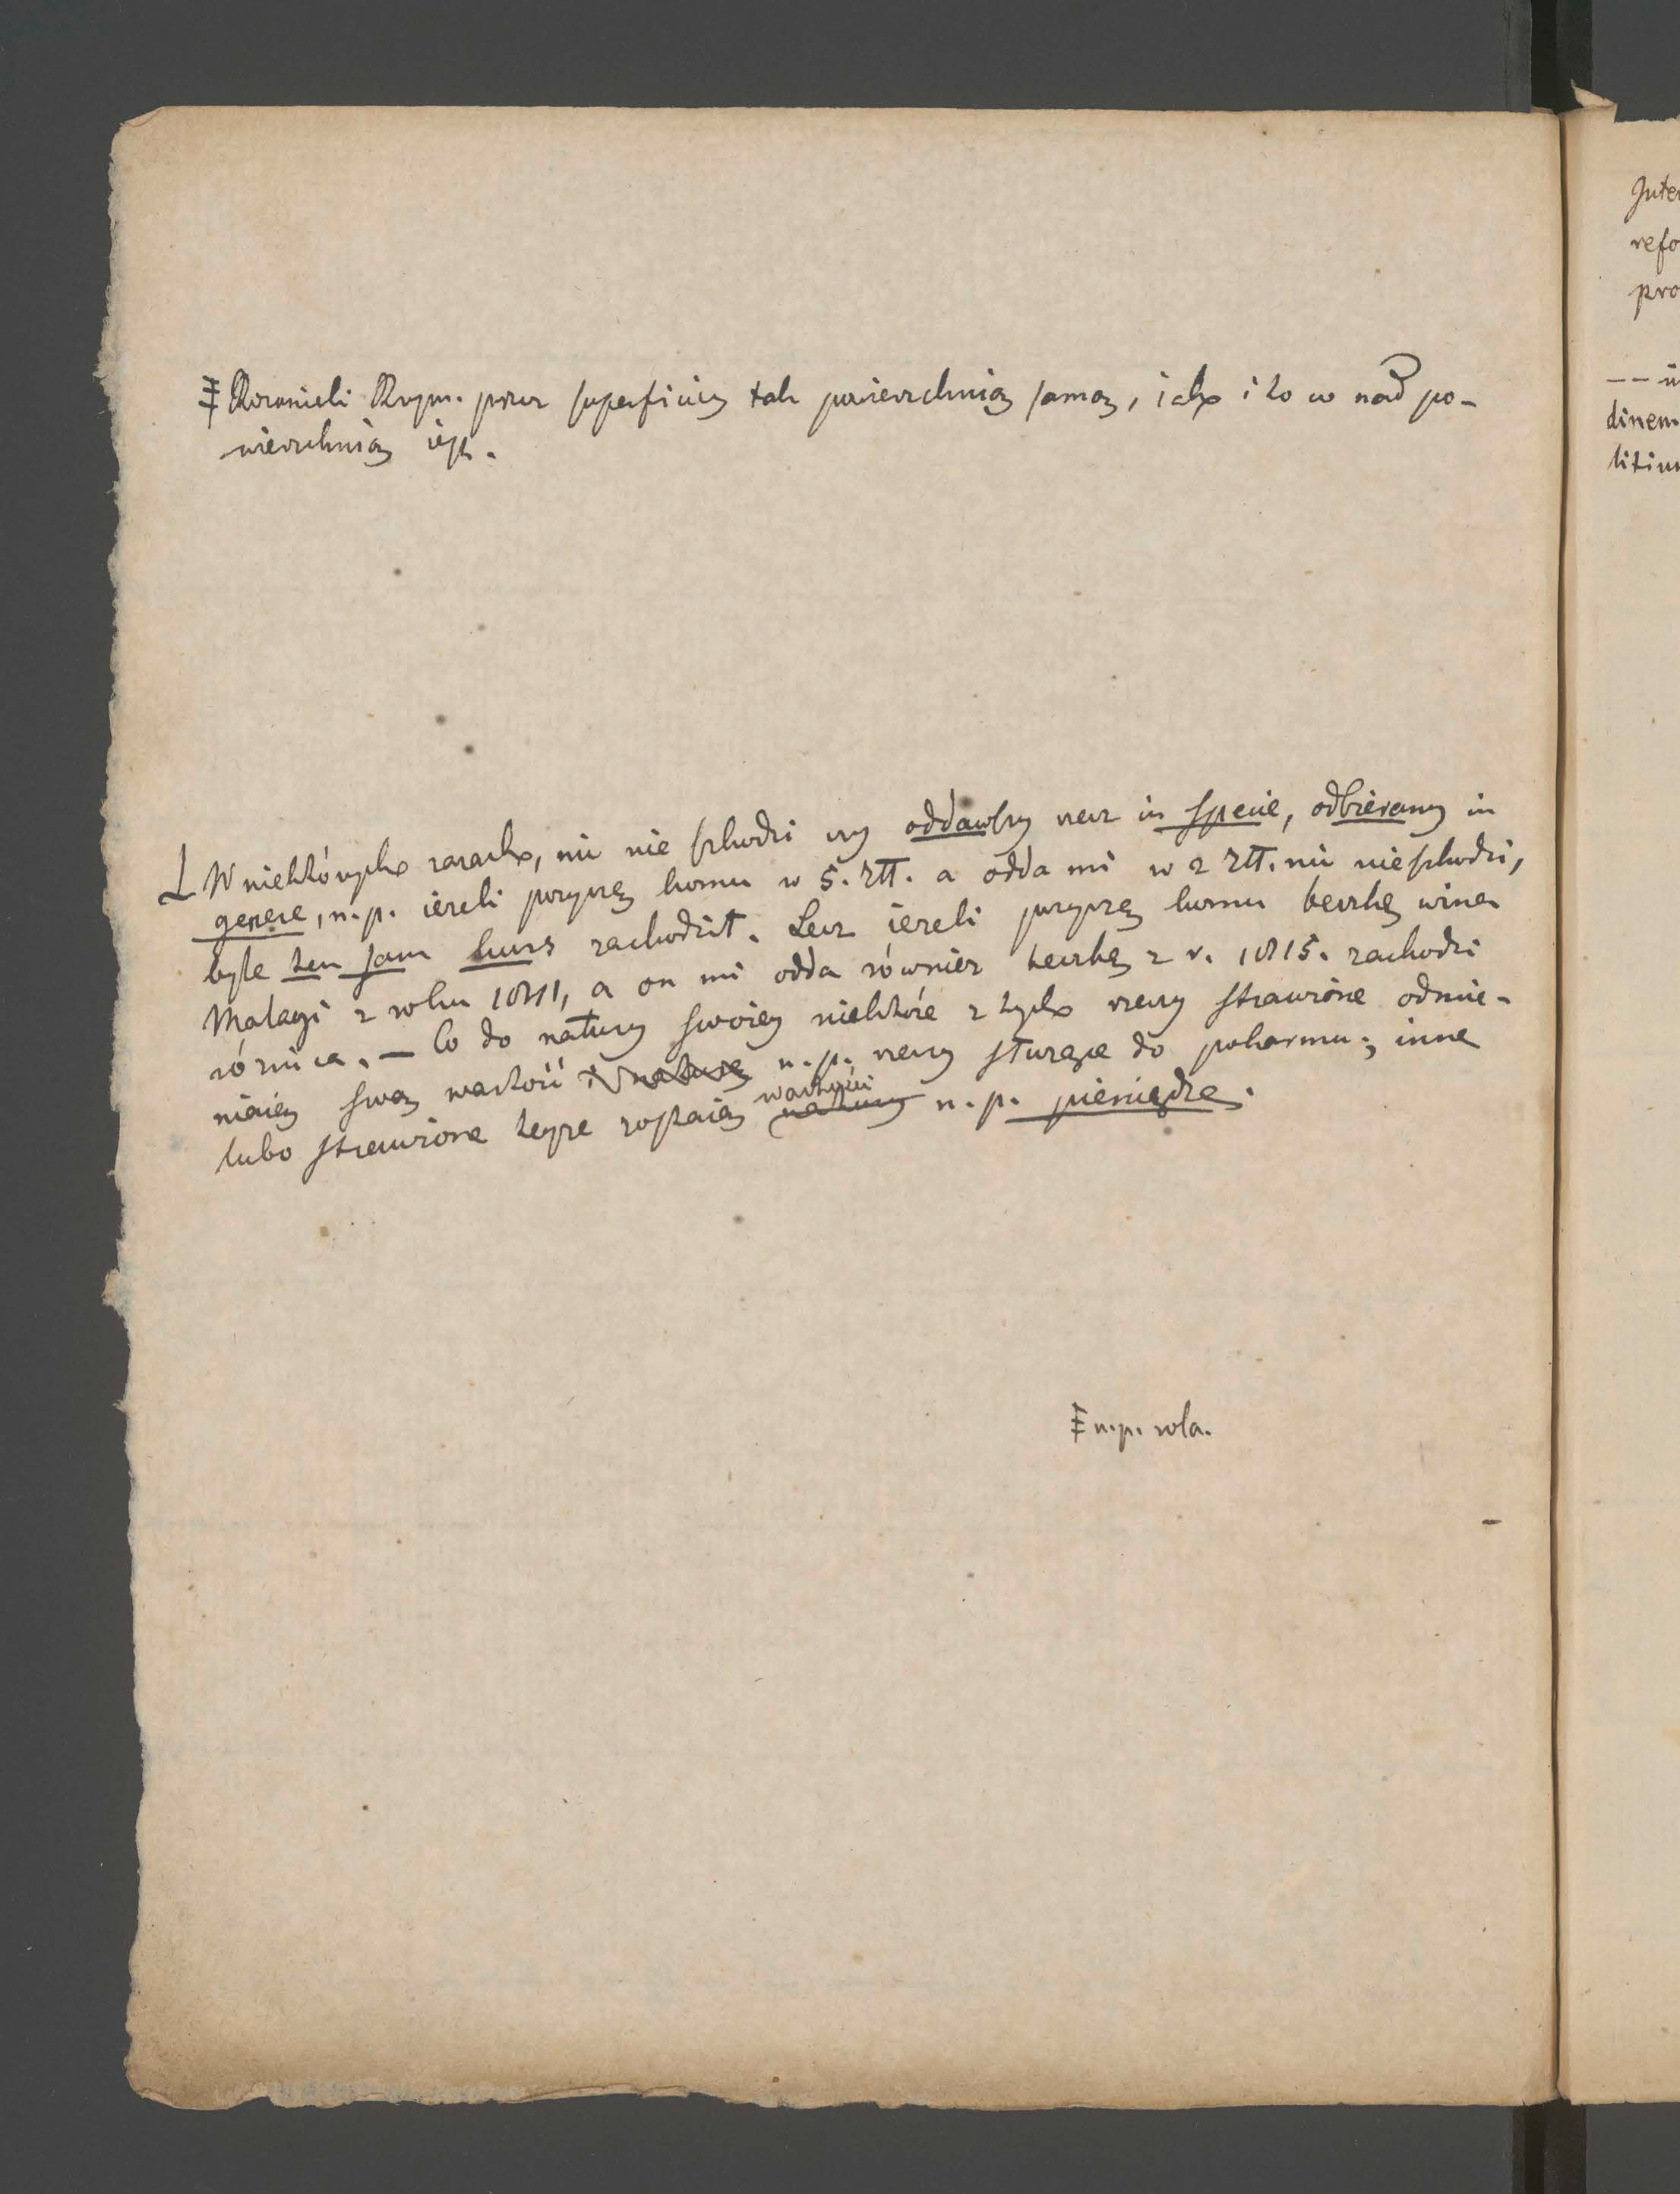 ‡ Rozumieli Rzym. przez superficiem tak powierzchnią samą, iako i to co nad po-
wierzchnią iest.
W niektórych razach, nic nie szkodzi czy oddawszy rzecz in specie, odbieramy in
genere, n.p. ieżeli pożyczę komu w 5. złł. a odda mi w 2 złł. nic nieszkodzi,
byle ten sam kurs zachodził. Lecz ieżeli pożyczę komu beczkę wina
Malagi z roku 1811, a on mi odda również beczkę z r. 1815. zachodzi
różnica. — Co do natury swoiey niektóre z tych rzeczy strawione odmie-
niaią swą wartość i naturę n.p. rzeczy służące do pokarmu; inne
lubo strawione teyże zostaią natury wartości n.p. pieniądze.
‡ n.p. rola.
Inte
refo
pro
dinem
litium